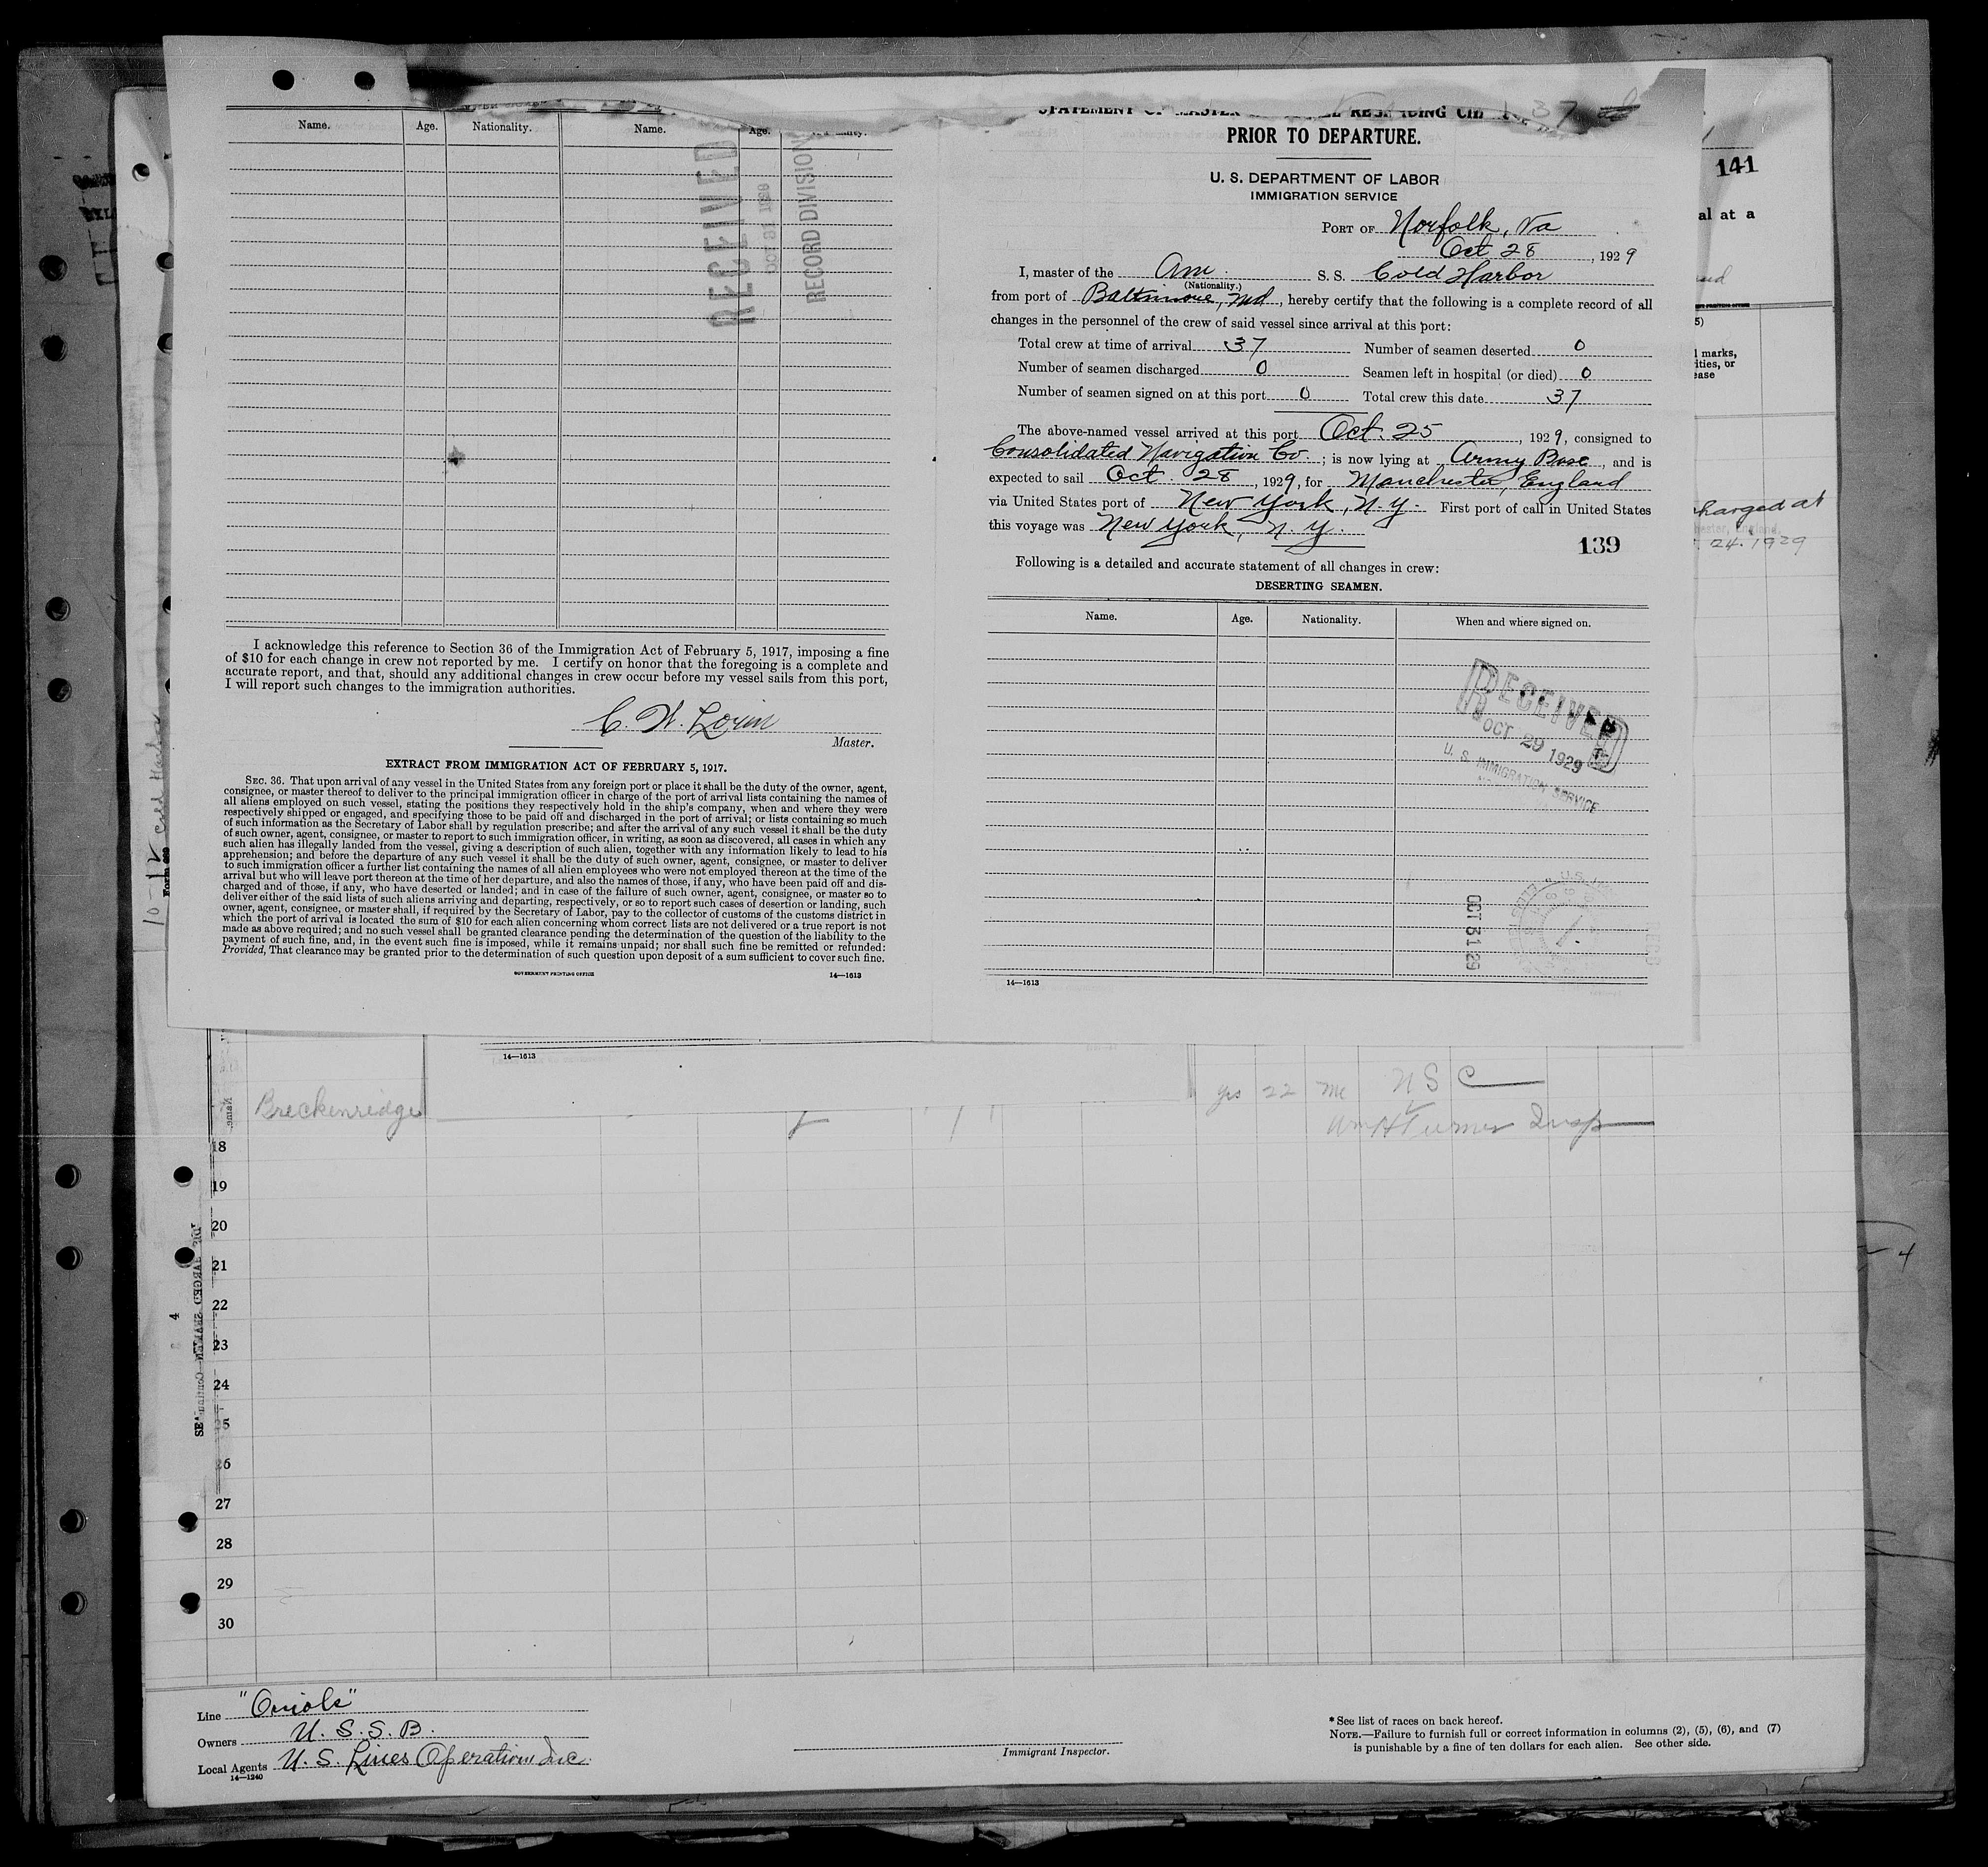 Name. Age. Nationality. Name. Age.
RECEIVED
RECORD DIVISION
I acknowledge this reference to Section 36 of the Immigration Act of February 5, 1917, imposing a fine
of $10 for each change in crew not reported by me. I certify on honor that the foregoing is a complete and
accurate report, and that, should any additional changes in crew occur before my vessel sails from this port,
I will report such changes to the immigration authorities.
C. W.
Master.
EXTRACT FROM IMMIGRATION ACT OF FEBRUARY 5, 1917.
SEC. 36. That upon arrival of any vessel in the United States from any foreign port or place it shall be the duty of the owner, agent,
consignee, or master thereof to deliver to the principal immigration officer in charge of the port of arrival lists containing the names of
all aliens employed on such vessel, stating the positions they respectively hold in the ship's company, when and where they were
respectively shipped or engaged, and specifying those to be paid off and discharged in the port of arrival; or lists containing so much
of such information as the Secretary of Labor shall by regulation prescribe; and after the arrival of any such vessel it shall be the duty
of such owner, agent, consignee, or master to report to such immigration officer, in writing, as soon as discovered, all cases in which any
such alien has illegally landed from the vessel, giving a description of such alien, together with any information likely to lead to his
apprehension; and before the departure of any such vessel it shall be the duty of such owner, agent, consignee, or master to deliver
to such immigration officer a further list containing the names of all alien employees who were not employed thereon at the time of the
arrival but who will leave port thereon at the time of her departure, and also the names of those, if any, who have been paid off and dis-
charged and of those, if any, who have deserted or landed; and in case of the failure of such owner, agent, consignee, or master so to
deliver either of the said lists of such aliens arriving and departing, respectively, or so to report such cases of desertion or landing, such
owner, agent, consignee, or master shall, if required by the Secretary of Labor, pay to the collector of customs of the customs district in
which the port of arrival is located the sum of $10 for each alien concerning whom correct lists are not delivered or a true report is not
made as above required; and no such vessel shall be granted clearance pending the determination of the question of the liability to the
payment of such fine, and, in the event such fine is imposed, while it remains unpaid; nor shall such fine be remitted or refunded:
Provided, That clearance may be granted prior to the determination of such question upon deposit of a sum sufficient to cover such fine.
GOVERNMENT PRINTING OFFICE 14—1613
STATEMENT OF MASTER
PRIOR TO DEPARTURE.
U. S. DEPARTMENT OF LABOR
IMMIGRATION SERVICE
PORT OF Norfolk, Va
Oct 28, 1929
I, master of the Am. S. S. Cold Harbor
(Nationality.)
from port of Baltimore, Md, hereby certify that the following is a complete record of all
changes in the personnel of the crew of said vessel since arrival at this port:
Total crew at time of arrival 37 Number of seamen deserted 0
Number of seamen discharged 0 Seamen left in hospital (or died) 0
Number of seamen signed on at this port 0 Total crew this date 37
The above-named vessel arrived at this port Oct. 25, 1929, consigned to
Consolidated Navigation Co.; is now lying at Army Base, and is
expected to sail Oct. 28, 1929, for Manchester, England
via United States port of New York, N.Y. First port of call in United States
this voyage was New York, N.Y.
139
Following is a detailed and accurate statement of all changes in crew:
DESERTING SEAMEN.
Name. Age. Nationality. When and where signed on.
RECEIVED
OCT 29 1929
U. S. IMMIGRATION SERVICE
OCT 31 29
14—1613
141
al at a
5)
l marks,
ities, or
ease
harged at
24. 1929
14—1613
Breckenridge yrs 22 Mc U S C
Wm H Turner Insp
18
19
20
21
22
23
24
25
26
27
28
29
30
4
Line "Oriole"
Owners U. S. S. B.
Local Agents U. S. Lines Operations Inc.
14—1240
Immigrant Inspector.
*See list of races on back hereof.
NOTE.—Failure to furnish full or correct information in columns (2), (5), (6), and (7)
is punishable by a fine of ten dollars for each alien. See other side.